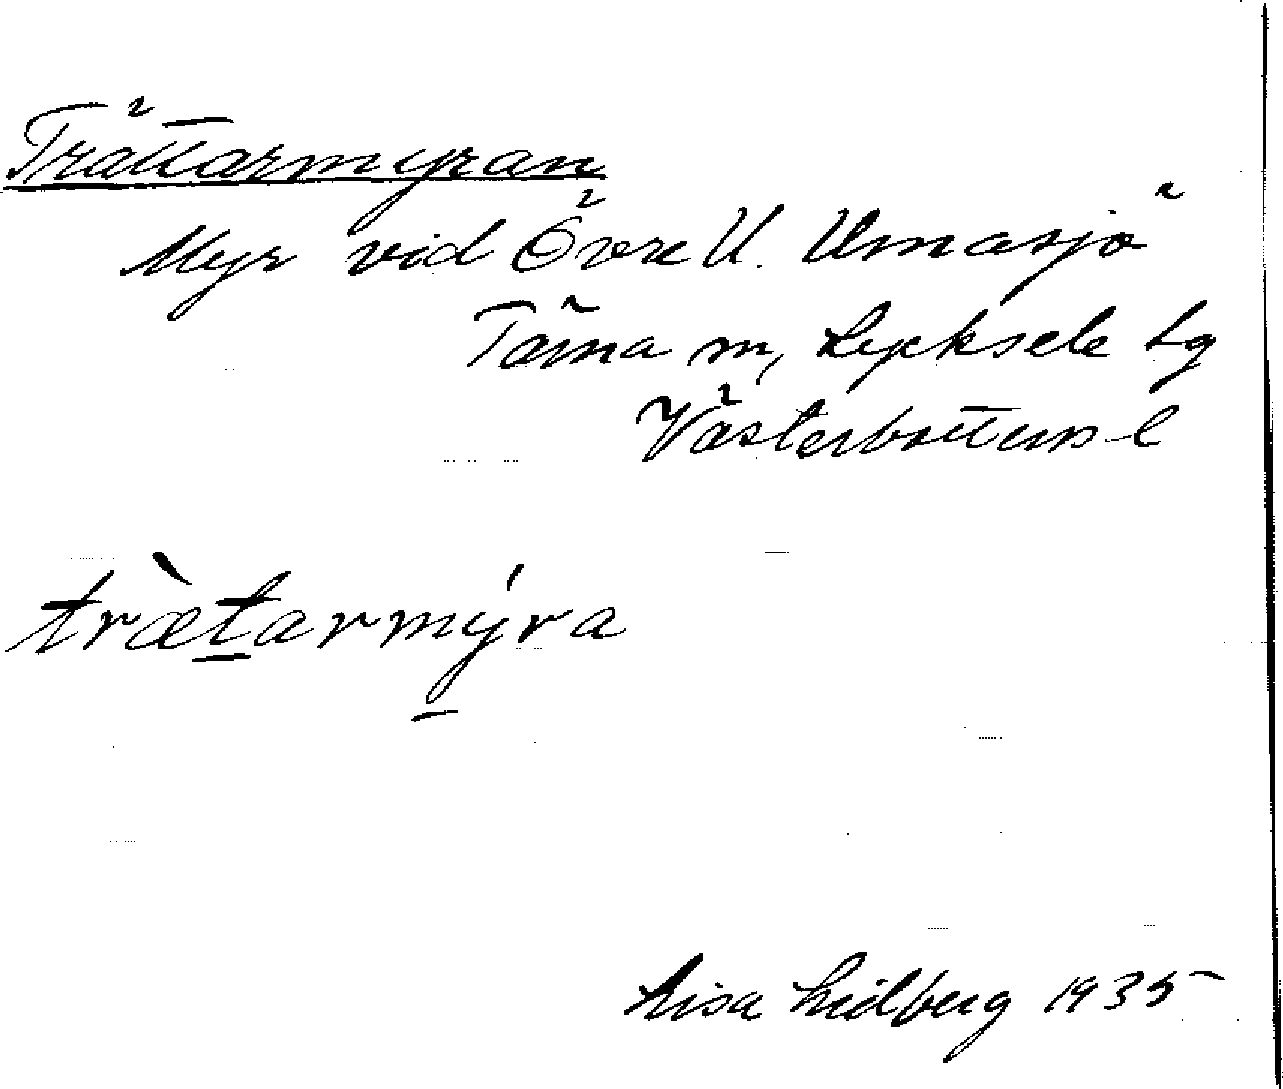 Trättarmyran
Myr vid Övre U. Umasjö
Tärna sn, Lycksele lg
Västerbottens l
træ̀tarmýra
Lisa Lidberg 1935